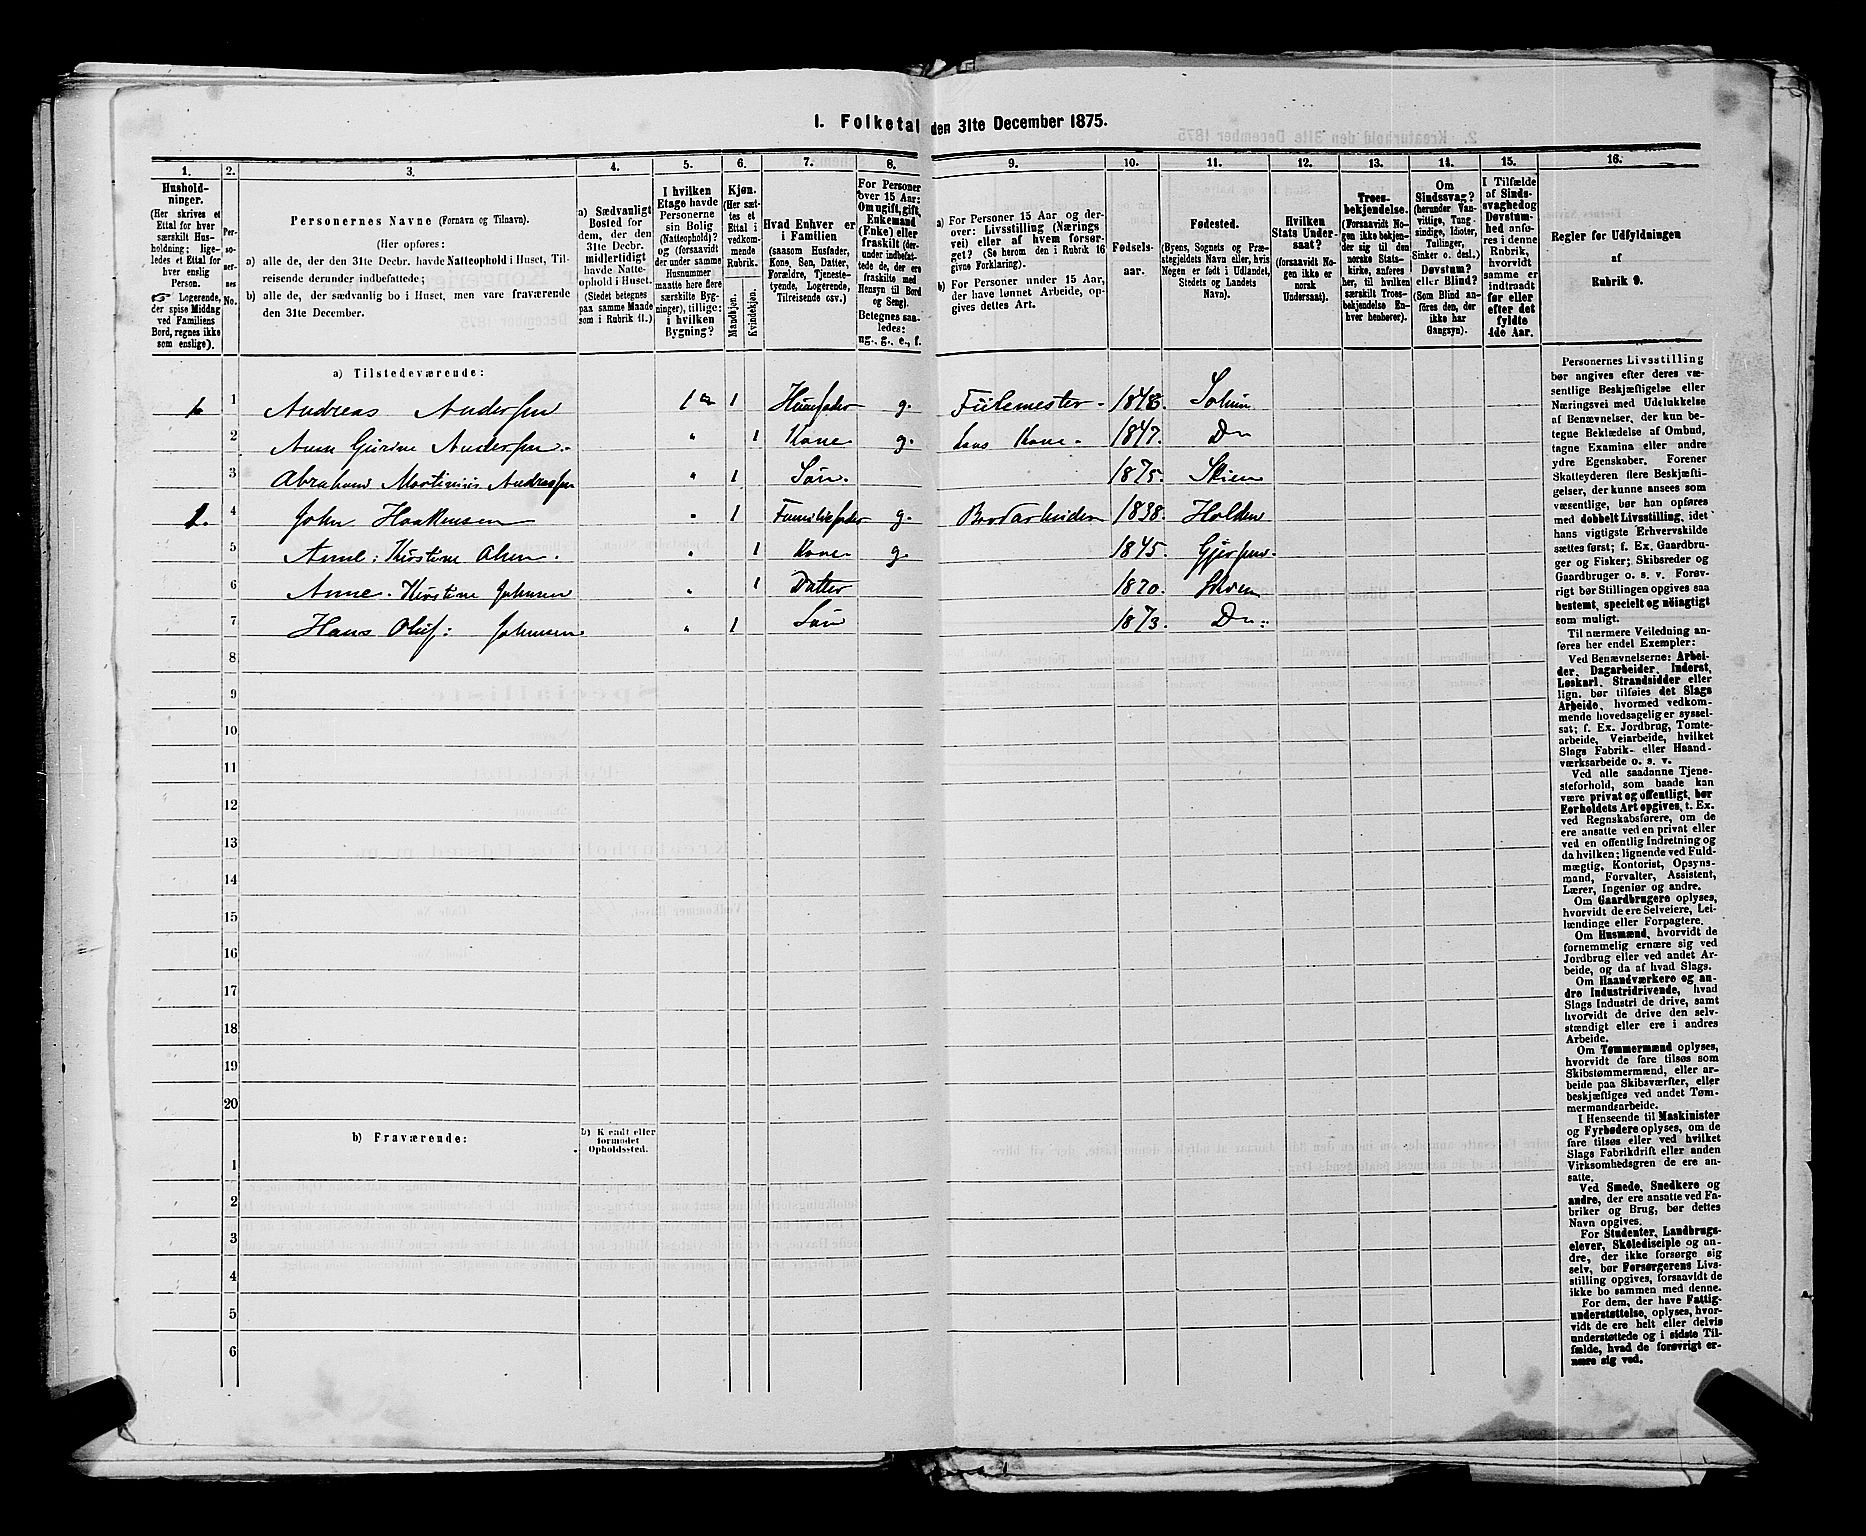 I. Folketal den 31te December 1875.
1. 2. 3. 4. 5. 6. 7. 8. 9. 10. 11. 12. 13. 14. 15. 16.
Hushold-
ninger.
(Her skrives et
Ettal for hver
særskilt Hus-
holdning; lige-
ledes et Ettal for
hver enslig
Person.
☞ Logerende,
der spise Middag
ved Familiens
Bord, regnes ikke
som enslige).
Per-
so-
ner-
nes
No.
Personernes Navne (Fornavn og Tilnavn).
(Her opføres:
a) alle de, der den 31te Decbr. havde Natteophold i Huset, Til-
reisende derunder indbefattede;
b) alle de, der sædvanlig bo i Huset, men vare fraværende
den 31te December.
a) Sædvanligt
Bosted for
dem, der den
31te Decbr.
midlertidigt
havde Natte-
ophold i Huset.
(Stedet betegnes
paa samme Maade
som i Rubrik 11.)
I hvilken
Etage havde
Personerne
sin Bolig
(Natteophold)?
og (forsaavidt
der under samme
Husnummer
maatte høre flere
særskilte Byg-
ninger), tillige:
i hvilken
Bygning?
Kjøn.
(Her sæt-
tes et
Ettal i
vedkom-
mende
Rubrik.
Mandkjøn.
Kvindekjøn.
Hvad Enhver er
i Familien
(saasom Husfader,
Kone, Søn, Datter,
Forældre, Tjeneste-
tyende, Logerende,
Tilreisende osv.)
For Personer
over 15 Aar:
Om ugift, gift,
Enkemand
(Enke) eller
fraskilt (der-
under indbefat-
tede de, der ere
fraskilte med
Hensyn til Bord
og Seng).
Betegnes saa-
ledes:
ug., g., e., f.
a) For Personer 15 Aar og der-
over: Livsstilling (Nærings
vei) eller af hvem forsør-
get? (Se herom den i Rubrik 16
givne Forklaring).
b) For Personer under 15 Aar,
der have lønnet Arbeide, op-
gives dettes Art.
Fødsels-
aar.
Fødested.
(Byens, Sognets og Præ-
stegjeldets Navn eller, hvis
Nogen er født i Udlandet,
Stedets og Landets
Navn).
Hvilken
Stats Under-
saat?
(forsaavidt No-
gen ikke er
norsk
Undersaat).
Troes-
bekjendelse.
(Forsaavidt No-
gen ikke bekjen-
der sig til den
norske Stats-
kirke, anføres
her, til hvilken
særskilt Troes-
bekjendelse En-
hver henhører).
Om
Sindssvag?
(herunder Van-
vittige, Tung-
sindige, Idioter,
Tullinger,
Sinker o. desl.)
Døvstum?
eller Blind?
(Som Blind an-
føres den, der
ikke har
Gangsyn).
I Tilfælde
af Sinds-
svaghed og
Døvstum-
hed anfø-
res i denne
Rubrik,
hvorvidt
samme er
indtraadt
før eller
efter det
fyldte
4de Aar.
Regler for Udfyldningen
af
Rubrik 9.
a) Tilstedeværende:
1. 1 Andreas Andersen 1 1 Husfader g. 1848. Solum
2 Anne Gurine Andersen. " 1 Kone. g. hans Kone. 1847. Do
3 Abraham Martinius Andersen " 1 Søn. 1875. Skien
1. 4 John Haakensen " 1 Familiefader g. 1838. Holden
5 Anne Kirstine Olsen. " 1 Kone. g. 1845. Gjerpen.
6 Anne Kirstine Johnsen " 1 Datter 1870. Skien
7 Hans Oluf Johnsen " 1 Søn 1873. Do
8
9
10
11
12
13
14
15
16
17
18
19
20
b) Fraværende:
b) Kjendt eller
formodet
Opholdssted.
1
2
3
4
5
6
Personernes Livsstilling
bør angives efter deres væ-
sentlige Beskjæftigelse eller
Næringsvei med Udelukkelse
af Benævnelser, der kun be-
tegne Beklædelse af Ombud,
tagne Examina eller andre
ydre Egenskaber. Forener
Skatteyderen flere Beskjæfti-
gelser, der kunne ansees som
væsentlige, bør han opføres
med dobbelt Livsstilling, idet
hans vigtigste Erhvervskilde
sættes først; f. Ex. Gaardbru-
ger og Fisker; Skibsreder og
Gaardbruger o. s. v. Forøv-
rigt bør Stillingen opgives saa
bestemt, specielt og nøiagtigt
som muligt.
Til nærmere Veiledning an-
føres her endel Exempler:
Ved Benævnelserne: Arbei-
der, Dagarbeider, Inderst,
Løskarl, Strandsidder eller
lign. bør tilføies det Slags
Arbeide, hvormed vedkom-
mende hovedsagelig er syssel-
sat; f. Ex. Jordbrug, Tomte-
arbeide, Veiarbeide, hvilket
Slags Fabrik- eller Haand-
værksarbeide o. s. v.
Ved alle saadanne Tjene-
steforhold, som baade kan
være privat og offentligt, bør
Forholdets Art opgives, t. Ex.
ved Regnskabsførere, om de
ere ansatte ved en privat eller
ved en offentlig Indretning og
da hvilken; lignende ved Fuld-
mægtig, Kontorist, Opsyns-
mand, Forvalter, Assistent,
Lærer, Ingeniør og andre.
Om Gaardbrugere oplyses,
hvorvidt de ere Selveiere, Lei-
lændinge eller Forpagtere.
Om Husmænd, hvorvidt de
fornemmelig ernære sig ved
Jordbrug eller ved andet Ar-
beide, og da af hvad Slags.
Om Haandværkere og an-
dre Industridrivende, hvad
Slags Industri de drive, samt
hvorvidt de drive den selv-
stændigt eller ere i andres
Arbeide.
Om Tømmermænd oplyses,
hvorvidt de fare tilsøs som
Skibstømmermænd, eller ar-
beide paa Skibsværfter, eller
beskjæftiges ved andet Tøm-
mermandsarbeide.
I Henseende til Maskinister
og Fyrbødere oplyses, om de
fare tilsøs eller ved hvilket
Slags Fabrikdrift eller anden
Virksomhedsgren de ere an-
satte.
Ved Smede, Snedkere og
andre, der ere ansatte ved Fa-
briker og Brug, bør dettes
Navn opgives.
For Studenter, Landbrugs-
elever, Skoledisciple og an-
dre, der ikke forsørge sig
selv, bør Forsørgerens Livs-
stilling opgives, forsaavidt de
ikke bo sammen med denne.
For dem, der have Fattig-
understøttelse, oplyses, hvor-
vidt de ere helt eller delvis
understøttede og i sidste Til-
fælde, hvad de forøvrigt er-
nære sig ved.